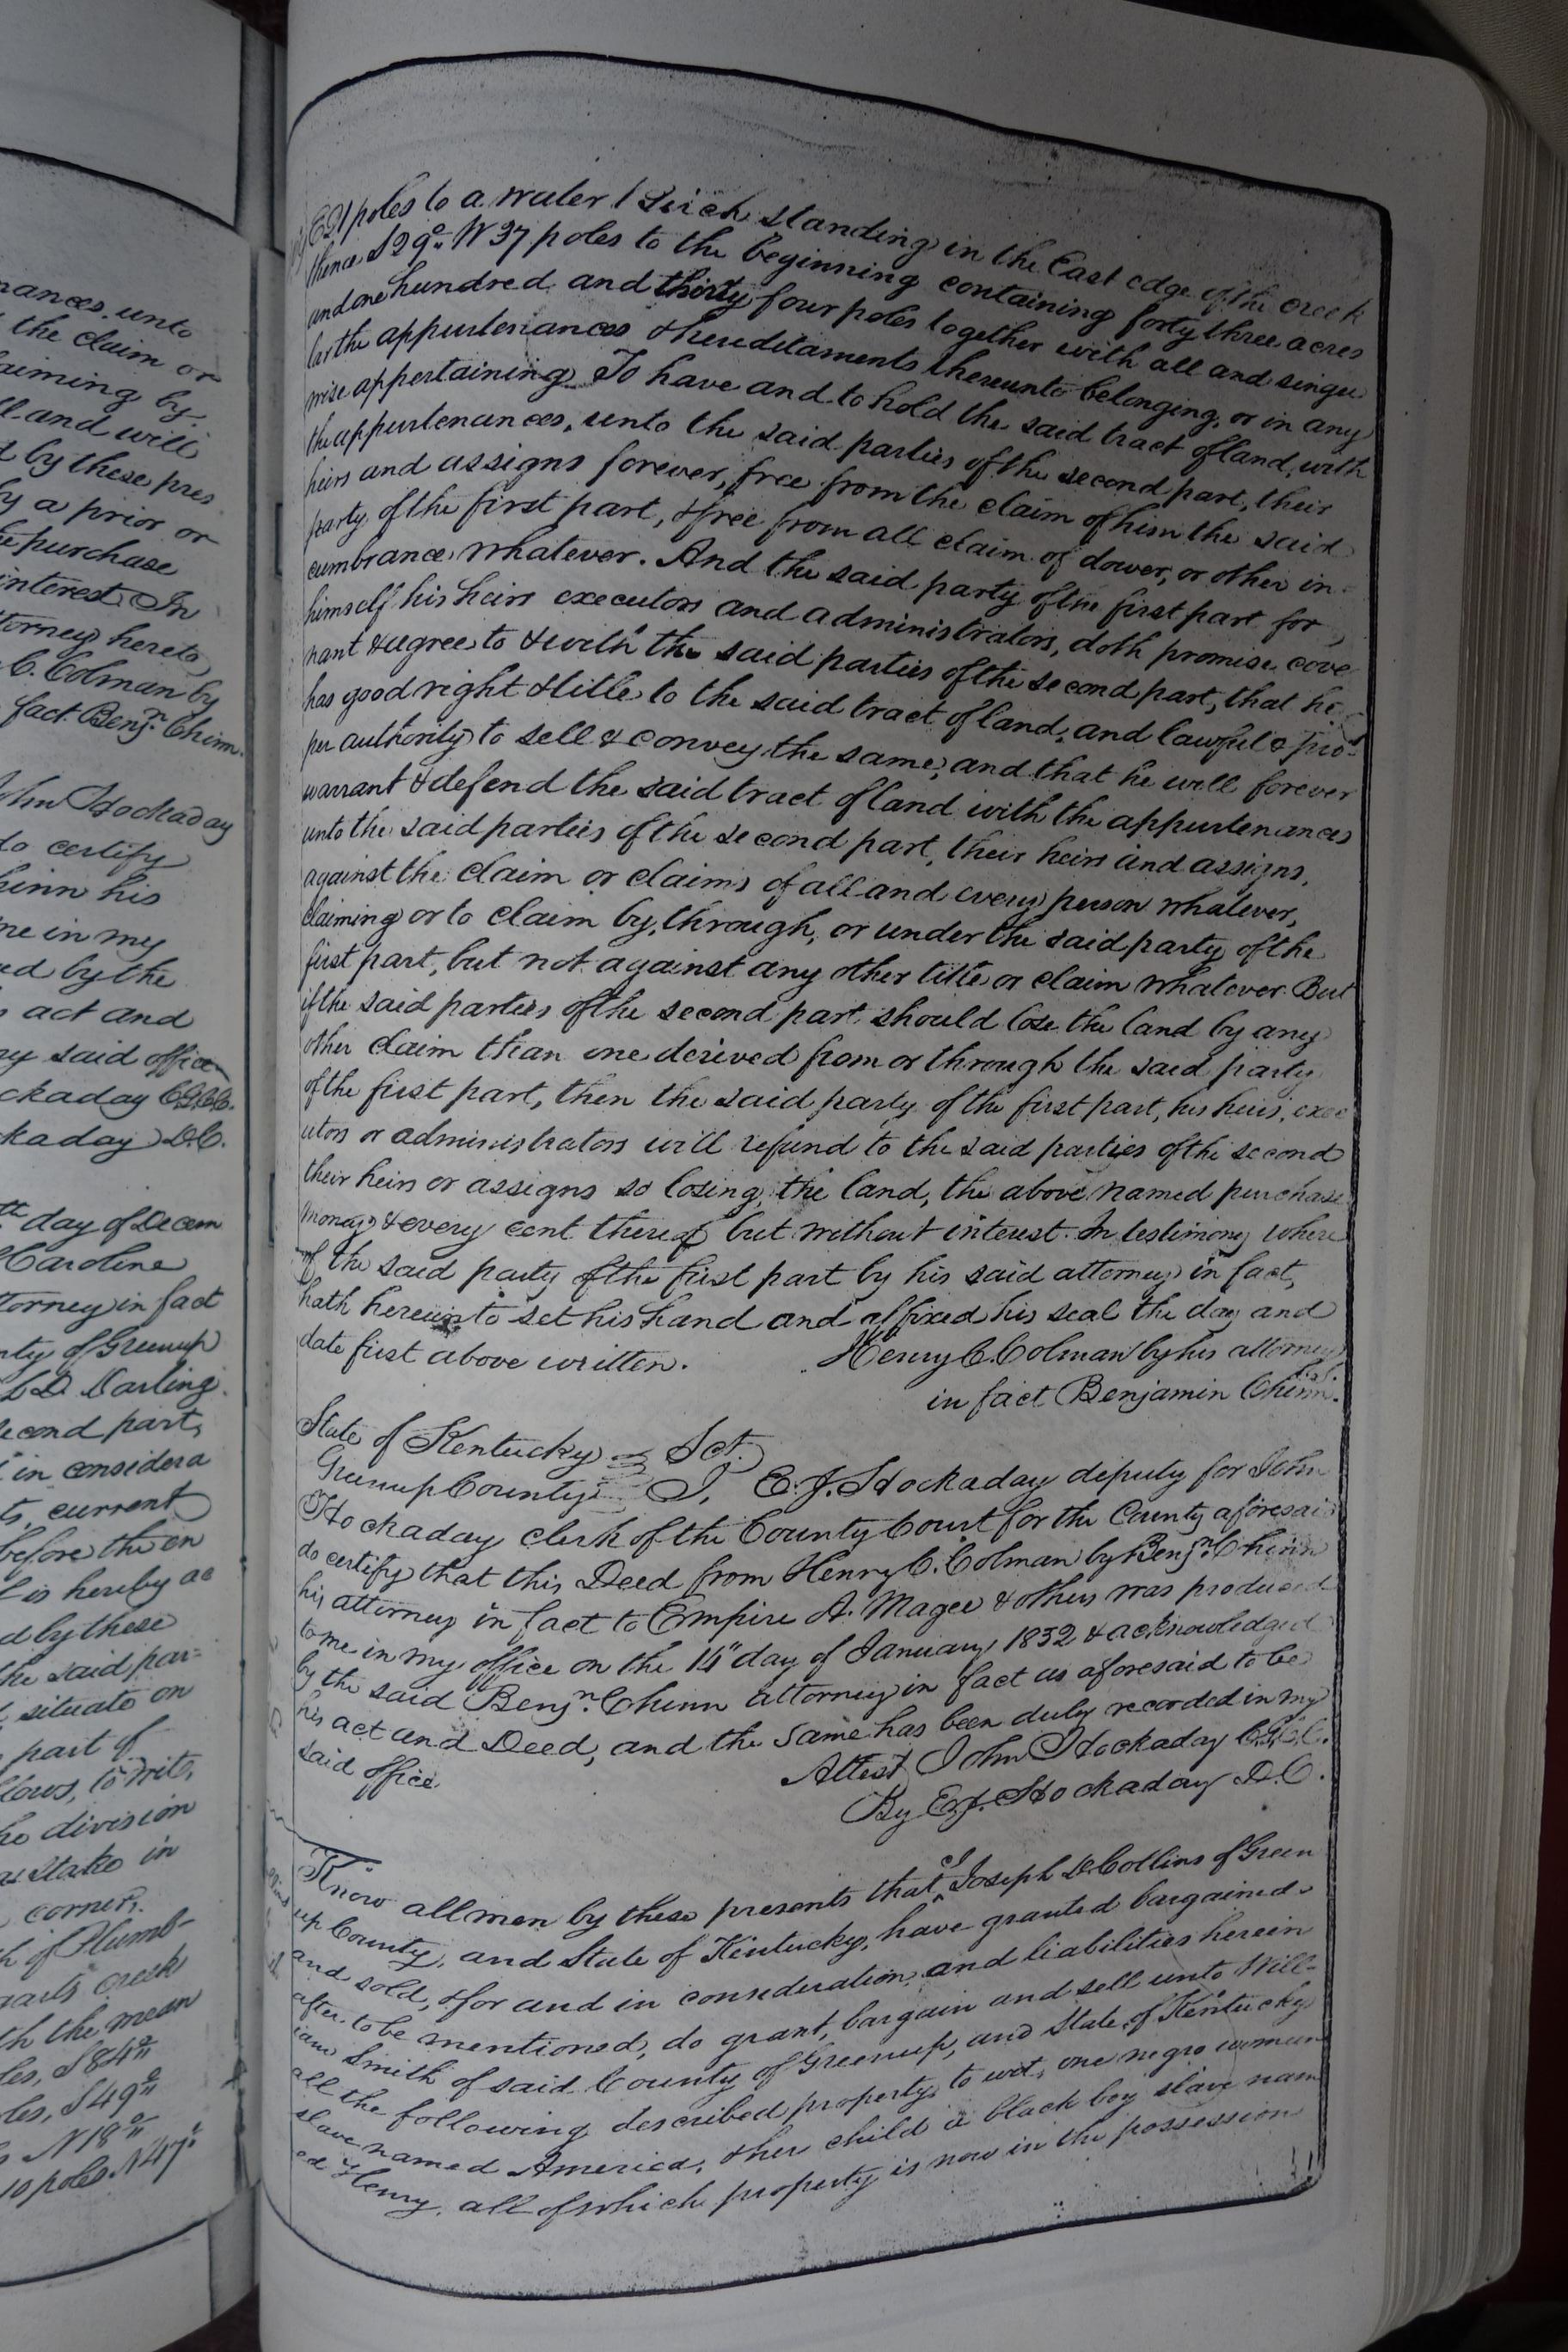 nances, unto
the claim or
aiming by
ll and will
d by these pres
by a prior or
e purchase
interest In
torney hereto
C. Colman by
fact Benjn. Chinn
John Hockaday
do certify
hinn his
me in my
ed by the
s act and
my said office
ckaday C.G.C.C.
kaday D.C.
th day of Decem
Caroline
torney in fact
nty of Greenup
D. Darling
econd part,
in considera
ts, current
before the en
t is hereby ac
d by these
he said par=
situate on
part of
lows, to wit,
he division
a stake in
corner,
h of Plumb-
garts creek
th the mean
les, S 84°
les, S 49°
N 18°
10 poles N 47°
E 21 poles to a water birch standing in the East edge of the creek
thence S 29° W 37 poles to the beginning containing forty three acres
and one hundred and thirty four poles together with all and singu
lar the appurtenances & hereditaments thereunto belonging, or in any
wise appertaining To have and to hold the said tract of land, with
the appurtenances, unto the said parties of the second part, their
heirs and assigns forever, free from the claim of him the said
party of the first part, & free from all claim of dower, or other in
cumbrance whatever. And the said party of the first part for
himself his heirs executors and administrators, doth promise cove
nant & agree to & with the said parties of the second part, that he
has good right & title to the said tract of land, and lawful & pro
per authority to sell & convey the same, and that he will forever
warrant & defend the said tract of land with the appurtenances
unto the said parties of the second part, their heirs and assigns,
against the claim or claims of all and every person whatever,
claiming or to claim by, through, or under the said party of the
first part, but not against any other title or claim whatever. But
if the said parties of the second part should lose the land by any
other claim than one derived from or through the said party
of the first part, then the said party of the first part, his heirs, exec
utors or administrators will refund to the said parties of the second
their heirs or assigns so losing the land, the above named purchase
money & every cent thereof but without interest. In testimony where
of the said party of the first part by his said attorney in fact,
hath hereunto set his hand and affixed his seal the day and
date first above written. Henry C. Colman by his attorney
in fact Benjamin Chinn.
State of Kentucky Sct.
Greenup County I, E. J. Hockaday deputy for John
Hockaday clerk of the County Court for the County aforesaid
do certify that this Deed from Henry C. Colman by Benjn. Chinn
his attorney in fact to Empire A. Magee & others was produced
to me in my office on the 14" day of January 1832 & acknowledged
by the said Benjn. Chinn attorney in fact as aforesaid to be
his act and Deed, and the same has been duly recorded in my
said office. Attest John Hockaday C.G.C.C.
By E. J. Hockaday D.C.
Know all men by these presents that I Joseph D. Collins of Green
up County, and State of Kentucky, have granted bargained
and sold, & for and in consideration, and liabilities herein
after to be mentioned, do grant, bargain and sell unto Will-
iam Smith of said County of Greenup, and State of Kentucky
all the following described property, to wit, one negro woman
slave named America, & her child a black boy slave nam
ed Henry, all of which property is now in the possession